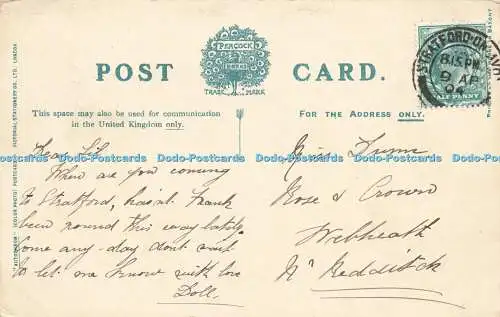 PEACOCK
TRADE MARK
POST CARD.
This space may also be used for communication
in the United Kingdom only.
FOR THE ADDRESS ONLY.
STRATFORD-ON-AVON
8.15 PM
9 AP
HALFPENNY
Dear Sis
When are you coming
to Stratford, hasnt Frank
been round this way lately
Come any-day dont wait
to let me know with love
Doll.
Miss
Rose & Crown
Webheath
Nr Redditch
"AUTOCHROM" (COLOR PHOTO) POSTCARD. PICTORIAL STATIONERY CO., LTD., LONDON
Dodo-Postcards Dodo-Postcards Dodo-Postcards Dodo-Postcards Dodo-Postcards